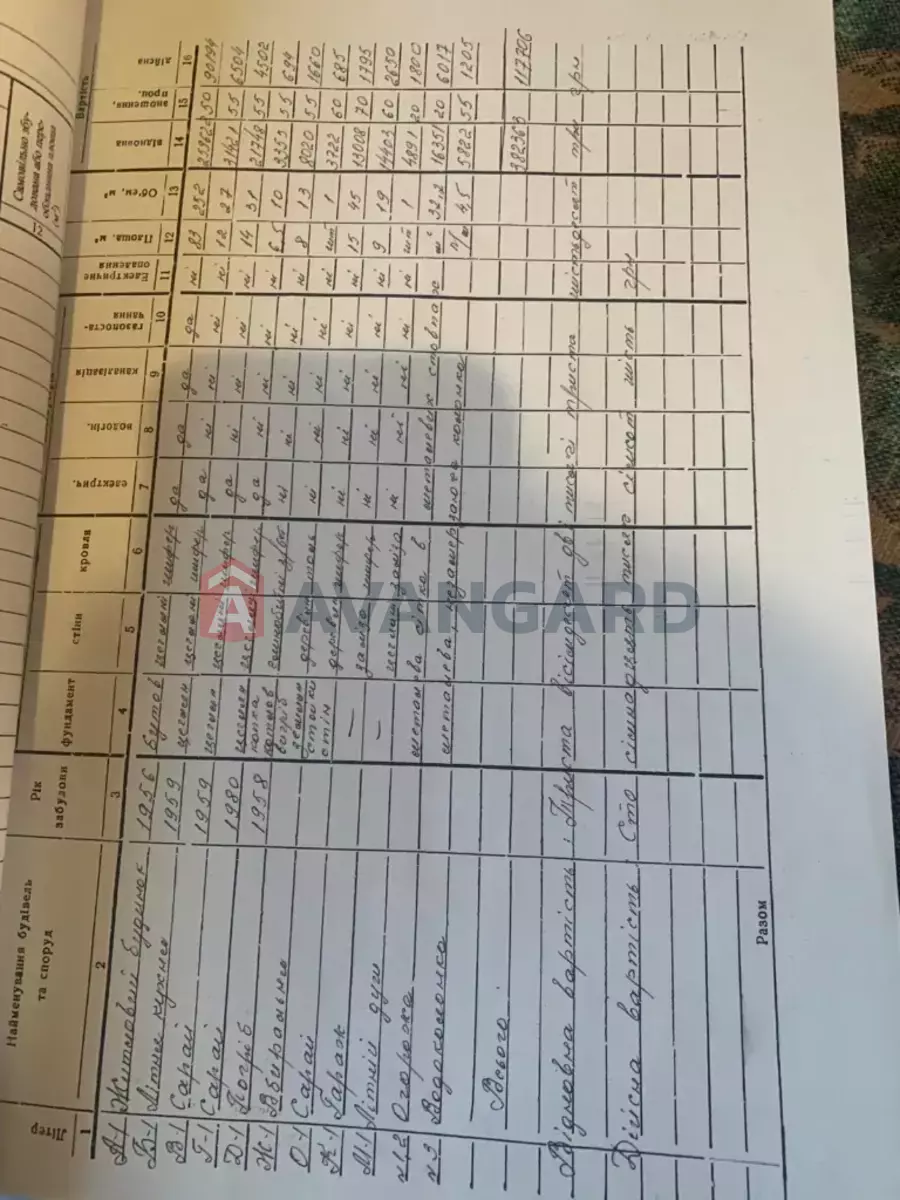 Самовільно збудована або переобладнана площа (м²)
12
Літер
Найменування будівель та споруд
Рік забудови
фундамент
стіни
кровля
електрич.
водогін.
каналізація
газопостачання
Електричне опалення
Площа, м²
Об'єм, м³
Вартість
відновна
зношення, проц.
дійсна
1 2 3 4 5 6 7 8 9 10 11 12 13 14 15 16
А-1 Житловий будинок 1956 бутов цегляні шифер да да да да ні 83 252 259623 50 90194
Б-1 Літня кухня 1959 цеглян цегляні шифер да ні ні ні ні 12 27 31421 55 6504
В-1 Сарай 1959 цеглян цегляні шифер да ні ні ні ні 14 31 21748 55 4502
Г-1 Сарай 1980 цеглян цегляні шифер да ні ні ні ні 6,5 10 3353 55 694
Д-1 Погріб 1958 ні ні ні ні ні 8 13 8020 55 1660
Ж-1 Вбиральня дерев'ян ні ні ні ні ні шт 1 3722 60 685
О-1 Сарай дерев'ян шифер ні ні ні ні ні 15 45 13008 70 1795
К-1 Гараж — залізо шифер ні ні ні ні ні 9 19 14403 60 2650
М-1 Літній душ — цегляні залізо ні ні ні ні ні шт 1 4891 20 1800
№1,2 Огорожа металева сітка в металевих стовпах 32,2 16351 20 6017
№3 Водоколонка металева, незамерзаюча колонка 4,5 5822 55 1205
Всього: 382363 117706
Відновна вартість: Триста вісімдесят дві тисячі триста шістдесят три грн
Дійсна вартість: Сто сімнадцять тисяч сімсот шість грн
Разом
AVANGARD